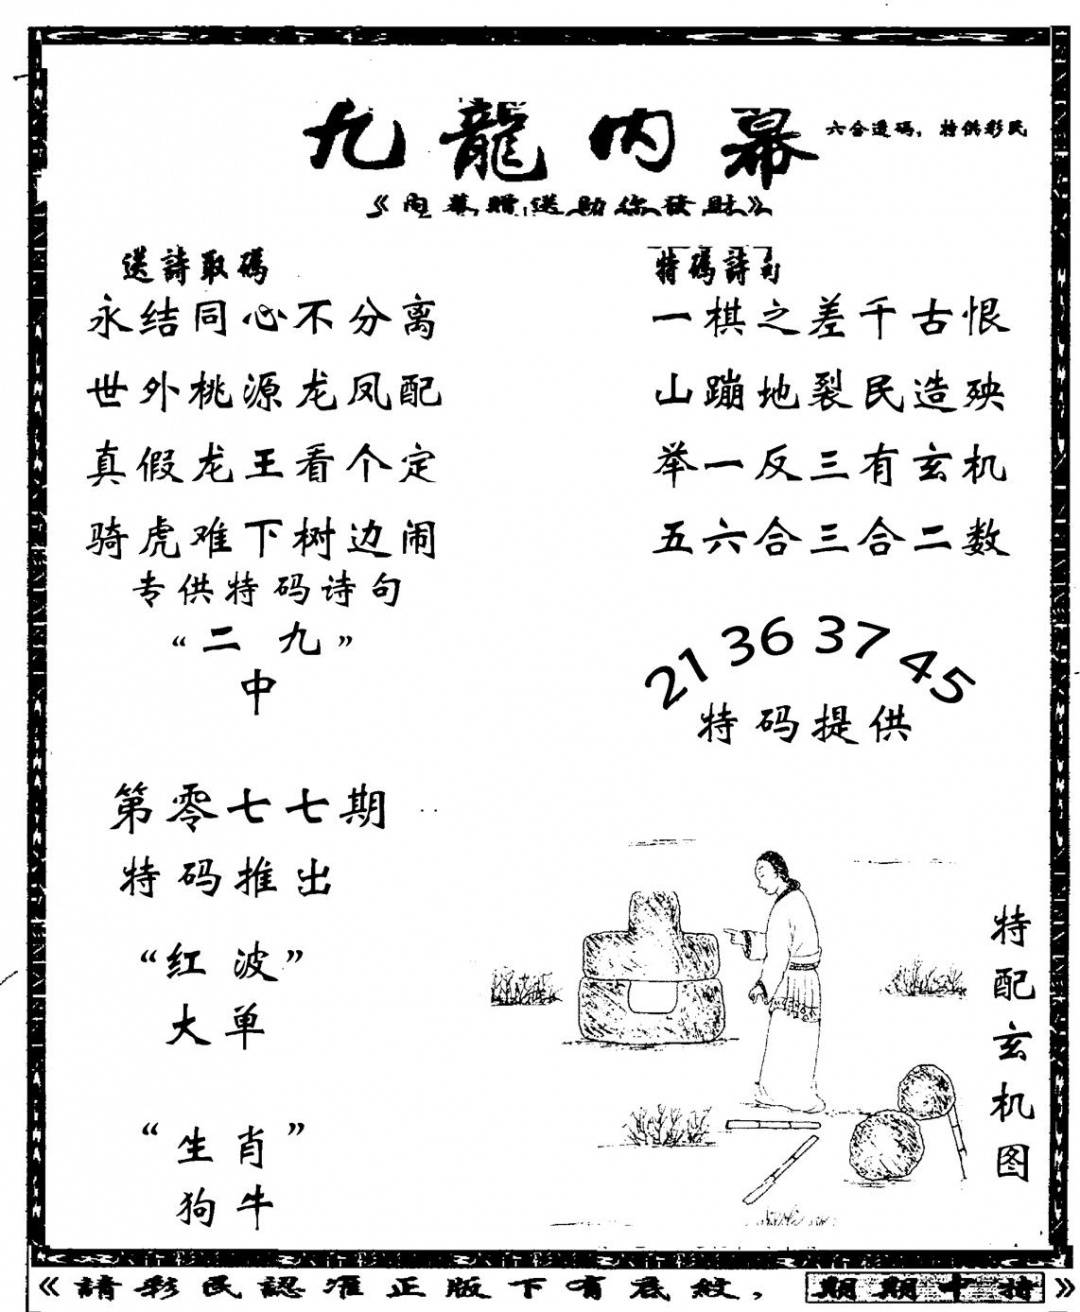 九龍内幕
六合透碼，特供彩民
《内幕贈送助你發財》
送詩取碼
永结同心不分离
世外桃源龙凤配
真假龙王看个定
骑虎难下树边闹
专供特码诗句
“二九”
中
第零七七期
特码推出
“红波”
大单
“生肖”
狗牛
特碼詩句
一棋之差千古恨
山蹦地裂民造殃
举一反三有玄机
五六合三合二数
21 36 37 45
特码提供
特配玄机图
《請彩民認准正版下有底紋，期期中特》